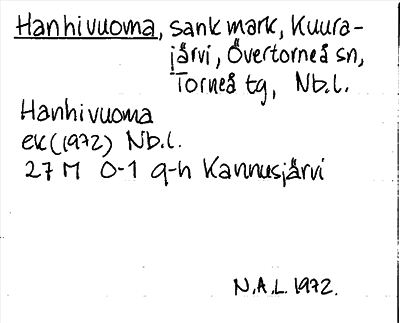 Hanhivuoma, sank mark, Kuura-
järvi, Övertorneå sn,
Torneå tg, Nb.l.
Hanhivuoma
ek (1972) Nb.l.
27 M 0-1 g-h Kannusjärvi
N.A.L. 1972.